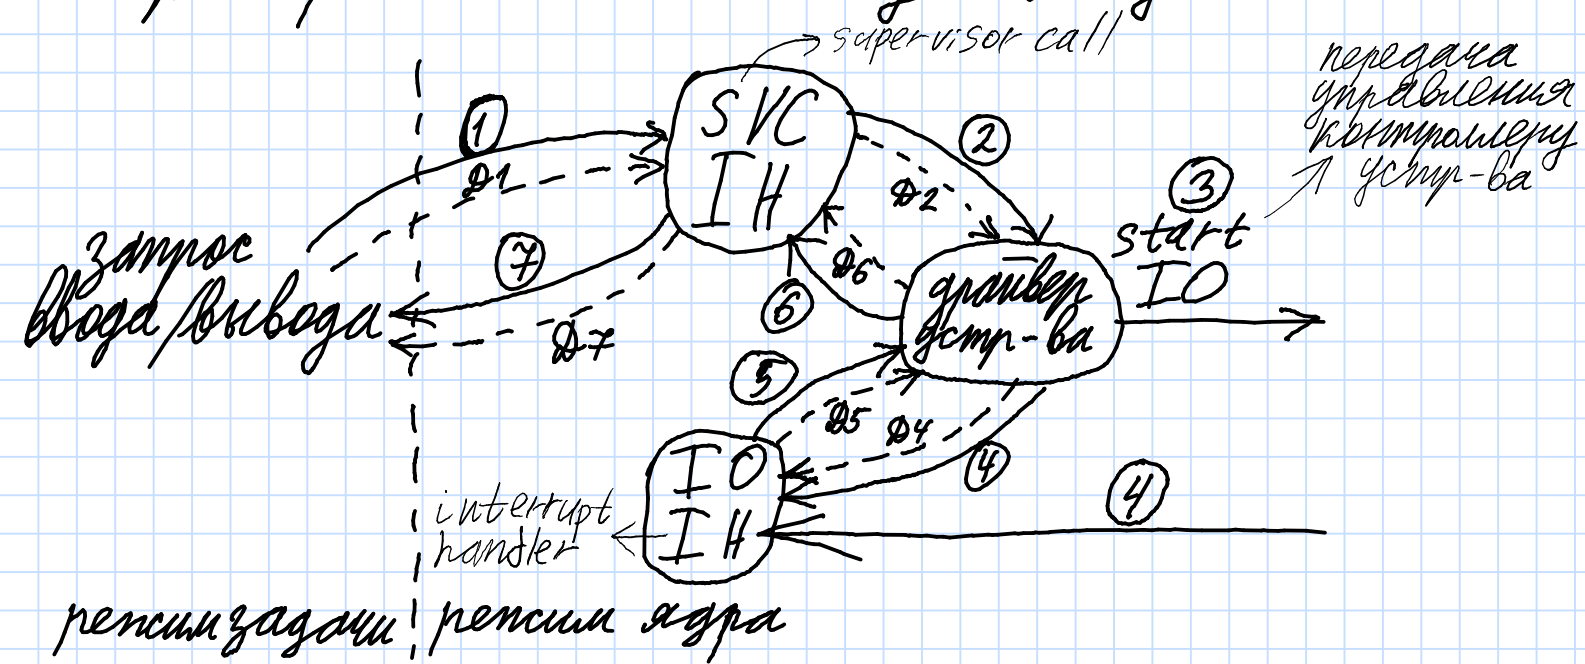 supervisor call
передача
управления
контроллеру
устр-ва
1
SVC
IH
2
Д1
Д2
3
start
IO
запрос
ввода/вывода
7
Д6
6
драйвер
устр-ва
Д7
5
Д5
Д4
4
IO
IH
4
interrupt
handler
режим задачи
режим ядра